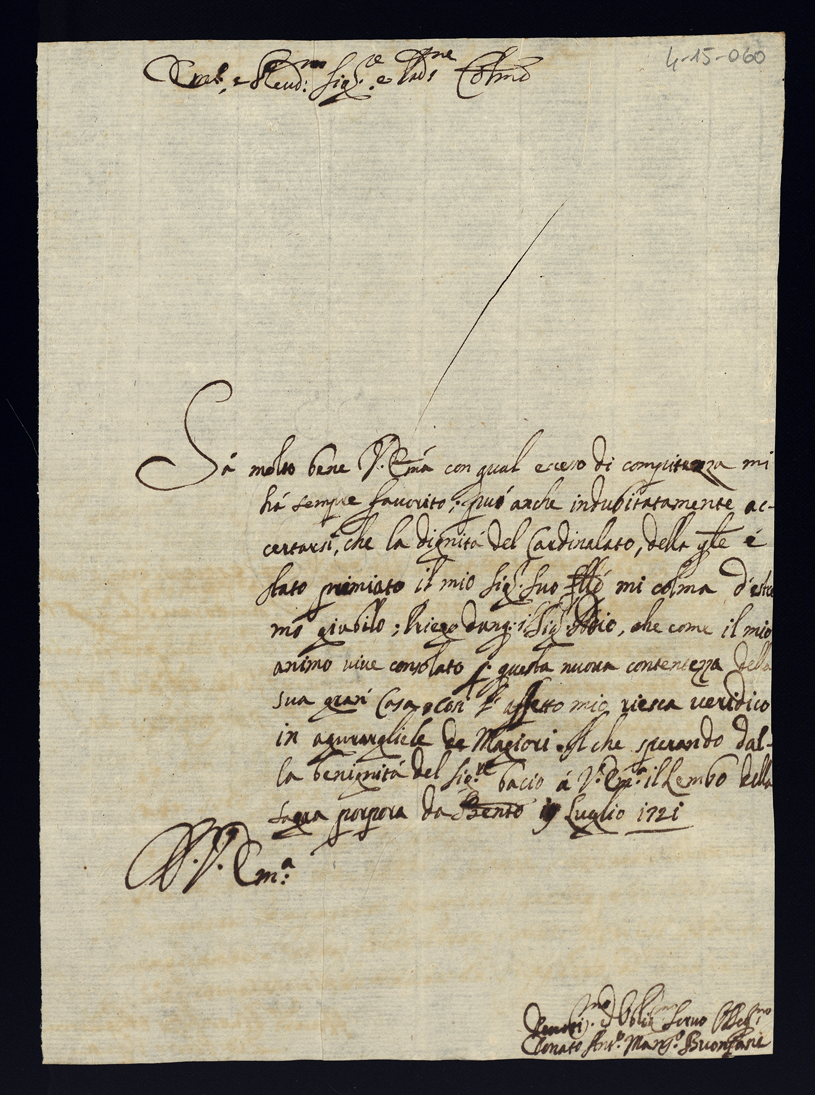 4-15-060
Em.º, e Reud.mo Sig.re e Pad.ne Colmo
Sá molto bene V. Emá con qual ecceso di compitezza mi
há sempre favorito; può anche indubitatamente ac-
certarsi, che la dignitá del Cardinalato, della qle é
stato premiato il mio Sig. suo mi colma d'estre
mo giubilo; Priego dunq. il Sig. Ddio, che come il mio
animo vive consolato p. questa nuova contentezza della
sua gran Casa, cosi l'affetto mio riesca veridico
in agurargliele de Magiori. Il che sperando dal-
la benignitá del Sig.re bacio á V. Em.a il Lembo della
sagra porpora da Bento 19 Luglio 1721
D. V. Em.a
Devoti.mo ed Obli.mo Servo
Donato Ant.o Marq.